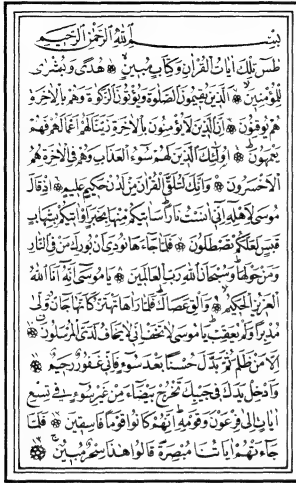 بسم الله الرحمن الرحيم
طس تلك ايات القران وكتاب مبين هدى وبشرى
للمؤمنين الذين يقيمون الصلوة ويؤتون الزكوة وهم بالاخرة
هم يوقنون ان الذين لا يؤمنون بالاخرة زينا لهم اعمالهم فهم
يعمهون اولئك الذين لهم سوء العذاب وهم في الاخرة هم
الاخسرون وانك لتلقى القران من لدن حكيم عليم اذ قال
موسى لاهله اني انست نارا ساتيكم منها بخبر او اتيكم بشهاب
قبس لعلكم تصطلون فلما جاءها نودي ان بورك من في النار
ومن حولها وسبحان الله رب العالمين يا موسى انه انا الله
العزيز الحكيم والق عصاك فلما راها تهتز كانها جان ولى
مدبرا ولم يعقب يا موسى لا تخف اني لا يخاف لدي المرسلون
الا من ظلم ثم بدل حسنا بعد سوء فاني غفور رحيم
وادخل يدك في جيبك تخرج بيضاء من غير سوء في تسع
ايات الى فرعون وقومه انهم كانوا قوما فاسقين فلما
جاءتهم اياتنا مبصرة قالوا هذا سحر مبين